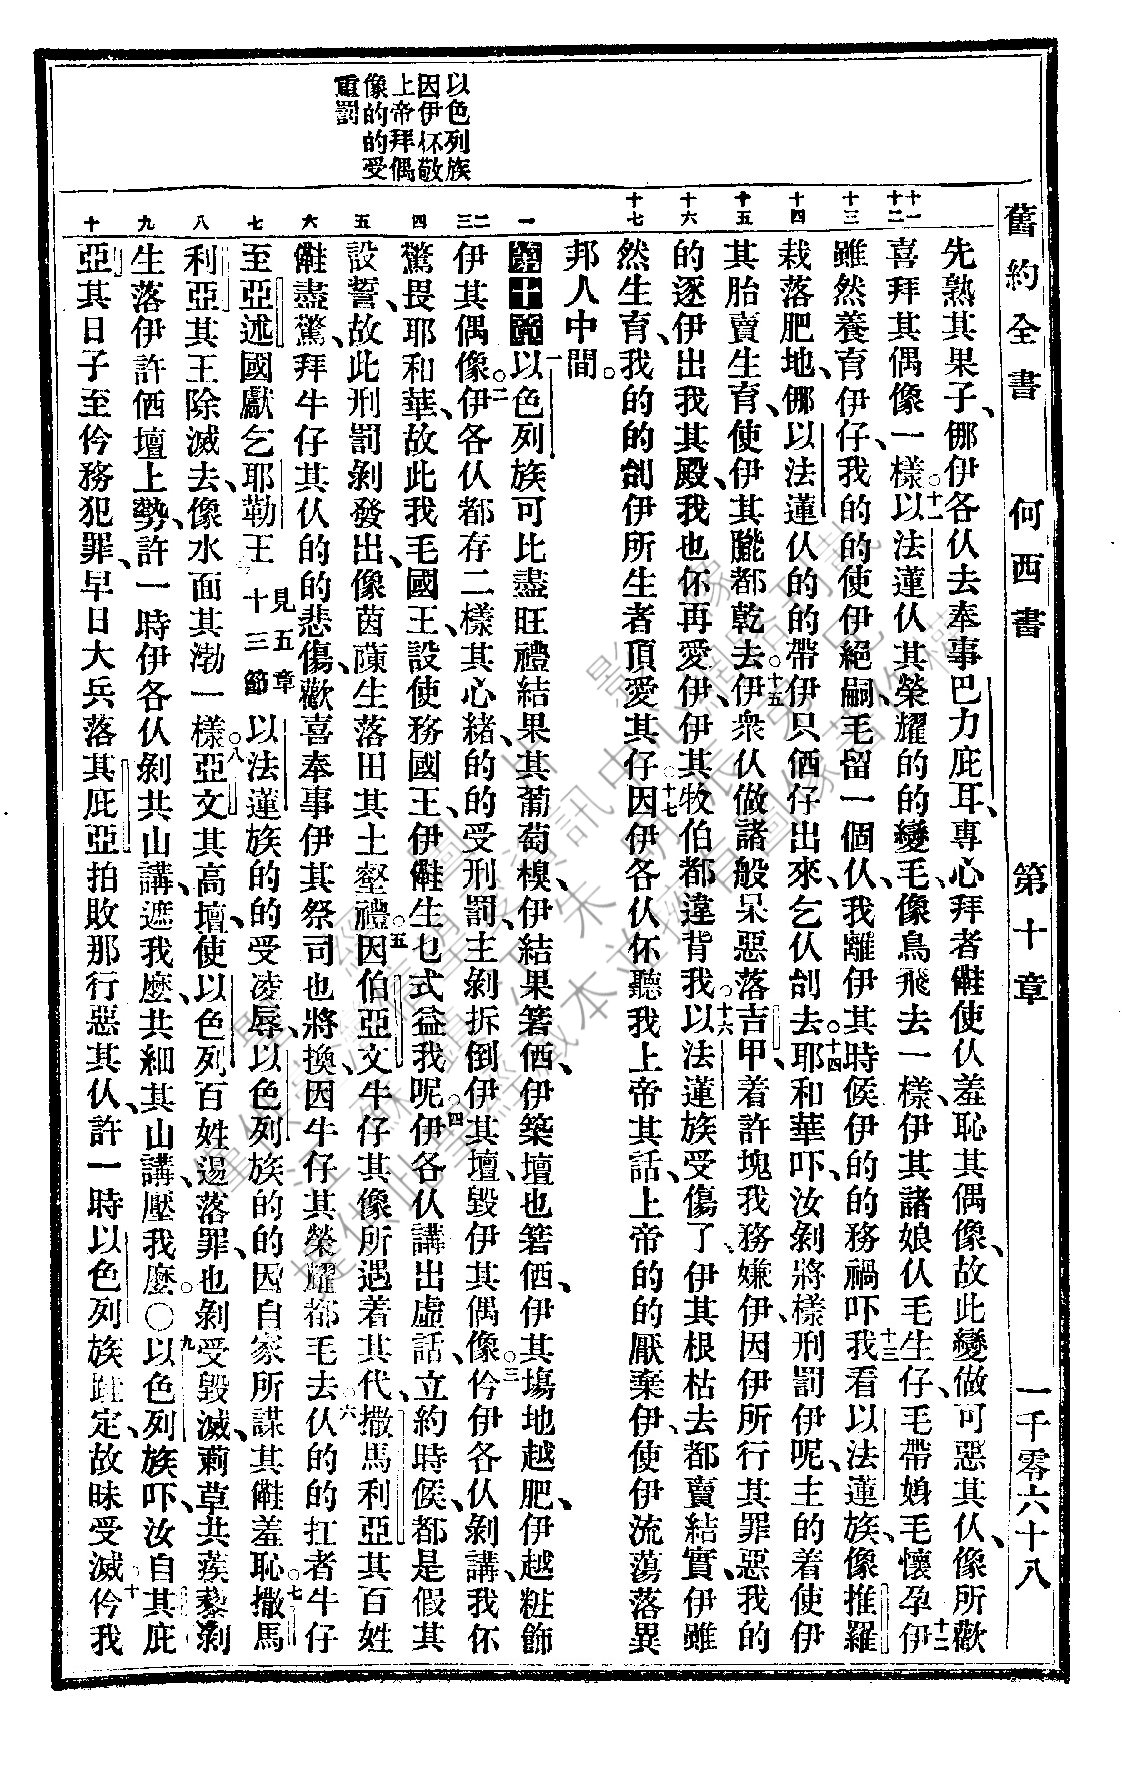 舊約全書 何西書 第十章 一千零六十八
以色列族
因伊伓敬
上帝拜偶
像的的受
重罰
先熟其果子、倻伊各仈去奉事巴力庇耳、專心拜者㑚使仈羞恥其偶像、故此變做可惡其仈、像所歡
十一 十二
喜拜其偶像一樣。十一以法蓮仈其榮耀的的變毛、像鳥飛去一樣、伊其諸娘仈毛生仔、毛帶㛂、毛懷孕。十二伊
十三
雖然養育伊仔、我的的使伊絕嗣、毛留一個仈、我離伊其時候、伊的的務禍吓。十三我看以法蓮族、像推羅
十四
栽落肥地、倻以法蓮仈的的帶伊只㒲仔出來、乞仈刣去。十四耶和華吓、汝剝將樣刑罰伊呢、主的着使伊
十五
其胎賣生育、使伊其𦜖都乾去。十五伊衆仈做諸般呆惡落吉甲、着許塊我務嫌伊、因伊所行其罪惡、我的
十六
的逐伊出我其殿、我也伓再愛伊、伊其牧伯都違背我。十六以法蓮族受傷了、伊其根枯去、都賣結實、伊雖
十七
然生育、我的的刣伊所生者頂愛其仔。十七因伊各仈伓聽我上帝其話、上帝的的厭棄伊、使伊流蕩落異
邦人中間。
一
第十章 一以色列族可比盡旺禮結果其葡萄樹、伊結果箬㒲、伊築壇也箬㒲、伊其塲地越肥、伊越粧飾
二 三
伊其偶像。二伊各仈都存二樣其心緒、的的受刑罰、主剝拆倒伊其壇、毀伊其偶像。三伶伊各仈剝講、我伓
四
驚畏耶和華、故此我毛國王、設使務國王、伊㑚生乜式益我呢。四伊各仈講出虛話、立約時候、都是假其
五
設誓、故此刑罰剝發出、像茵蔯生落田其土壑禮。五因伯亞文牛仔其像所遇着其代、撒馬利亞其百姓
六
㑚盡驚、拜牛仔其仈的的悲傷、歡喜奉事伊其祭司也將換、因牛仔其榮耀都毛去。六仈的的扛者牛仔
七
至亞述國獻乞耶勒王見五章十三節以法蓮族的的受凌辱、以色列族的的因自家所謀其㑚羞恥。七撒馬
八
利亞其王除滅去、像水面其渤一樣。八亞文其高壇、使以色列百姓逿落罪、也剝受毀滅、莿草共蒺藜剝
九
生落伊許㒲壇上勢、許一時伊各仈剝共山講、遮我麼、共細其山講、壓我麼。○九以色列族吓、汝自其庇
十
亞其日子至伶務犯罪、早日大兵落其庇亞拍敗那行惡其仈、許一時以色列族踓定、故昧受滅。十伶我